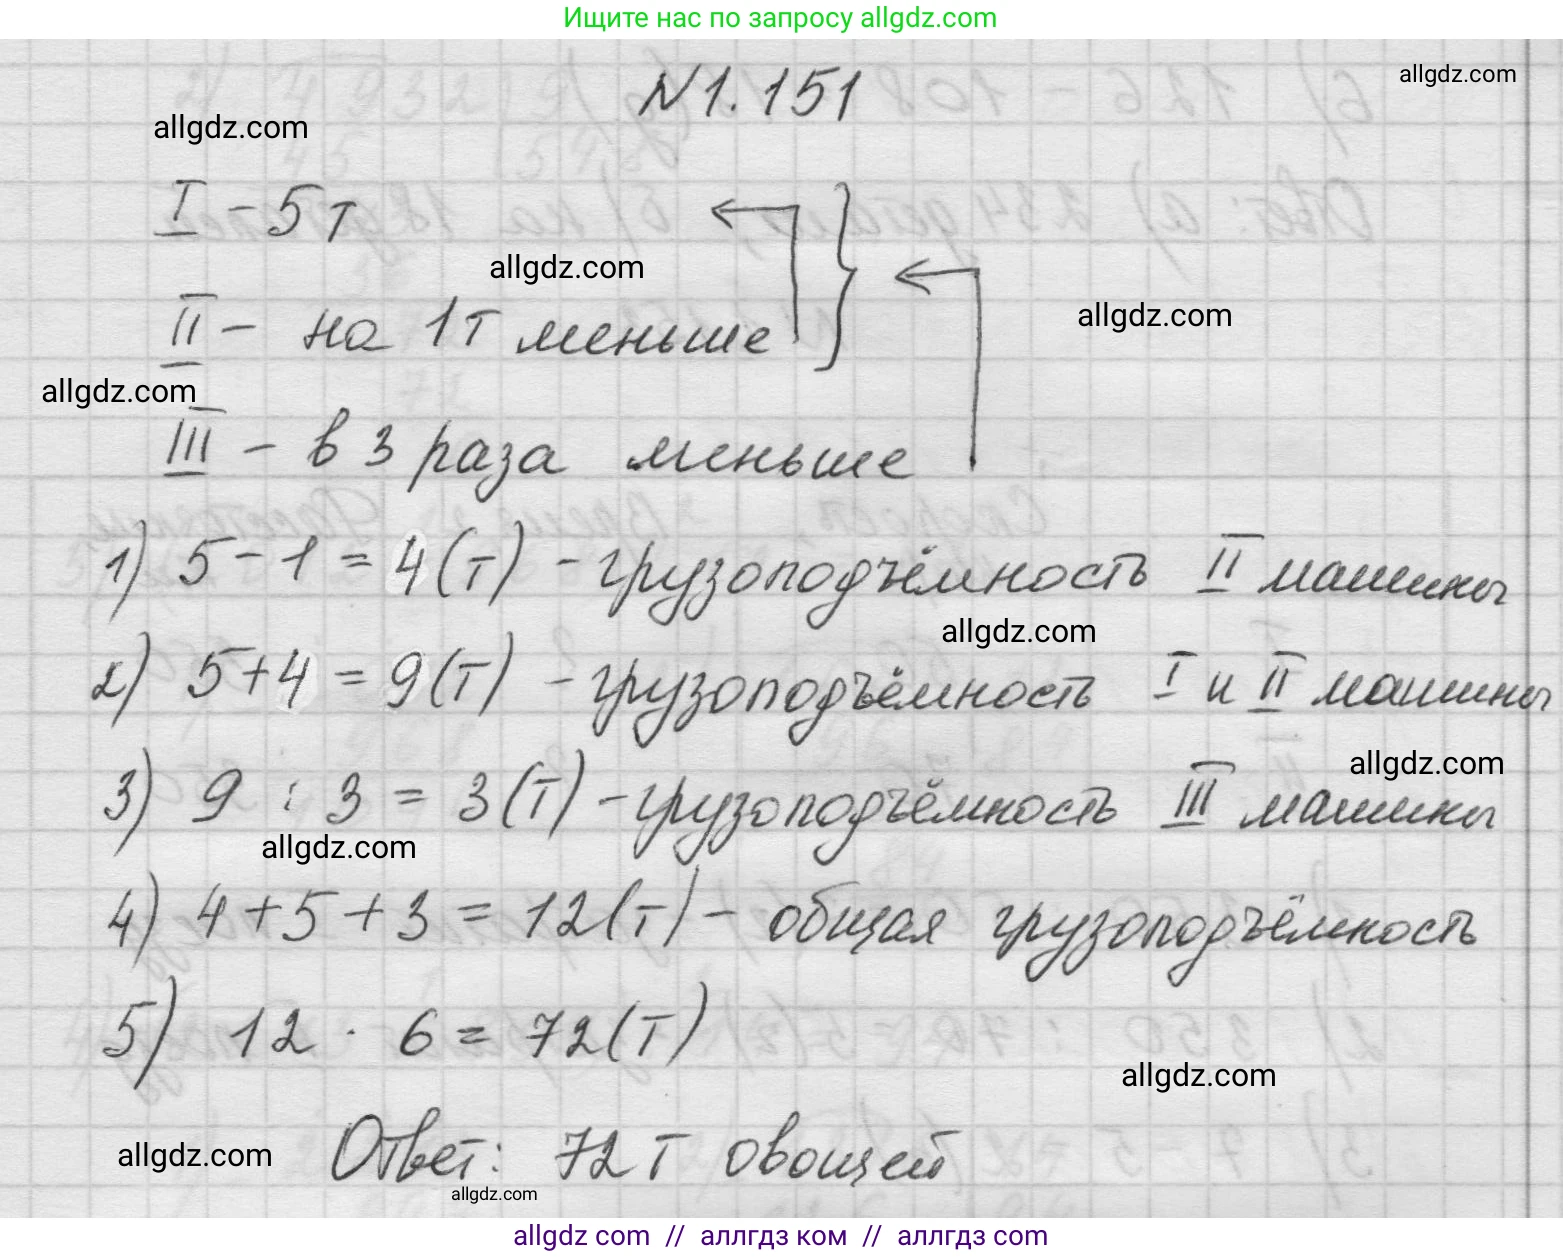 Ищите нас по запросу allgdz.com
№1.151
allgdz.com
allgdz.com
I - 5 т
allgdz.com
II - на 1 т меньше
allgdz.com
allgdz.com
III - в 3 раза меньше
1) 5 - 1 = 4 (т) - грузоподъёмность II машины
allgdz.com
2) 5 + 4 = 9 (т) - грузоподъёмность I и II машины
allgdz.com
3) 9 : 3 = 3 (т) - грузоподъёмность III машины
allgdz.com
4) 4 + 5 + 3 = 12 (т) - общая грузоподъёмность
5) 12 · 6 = 72 (т)
allgdz.com
Ответ: 72 т овощей
allgdz.com
allgdz.com
allgdz com // аллгдз ком // аллгдз com